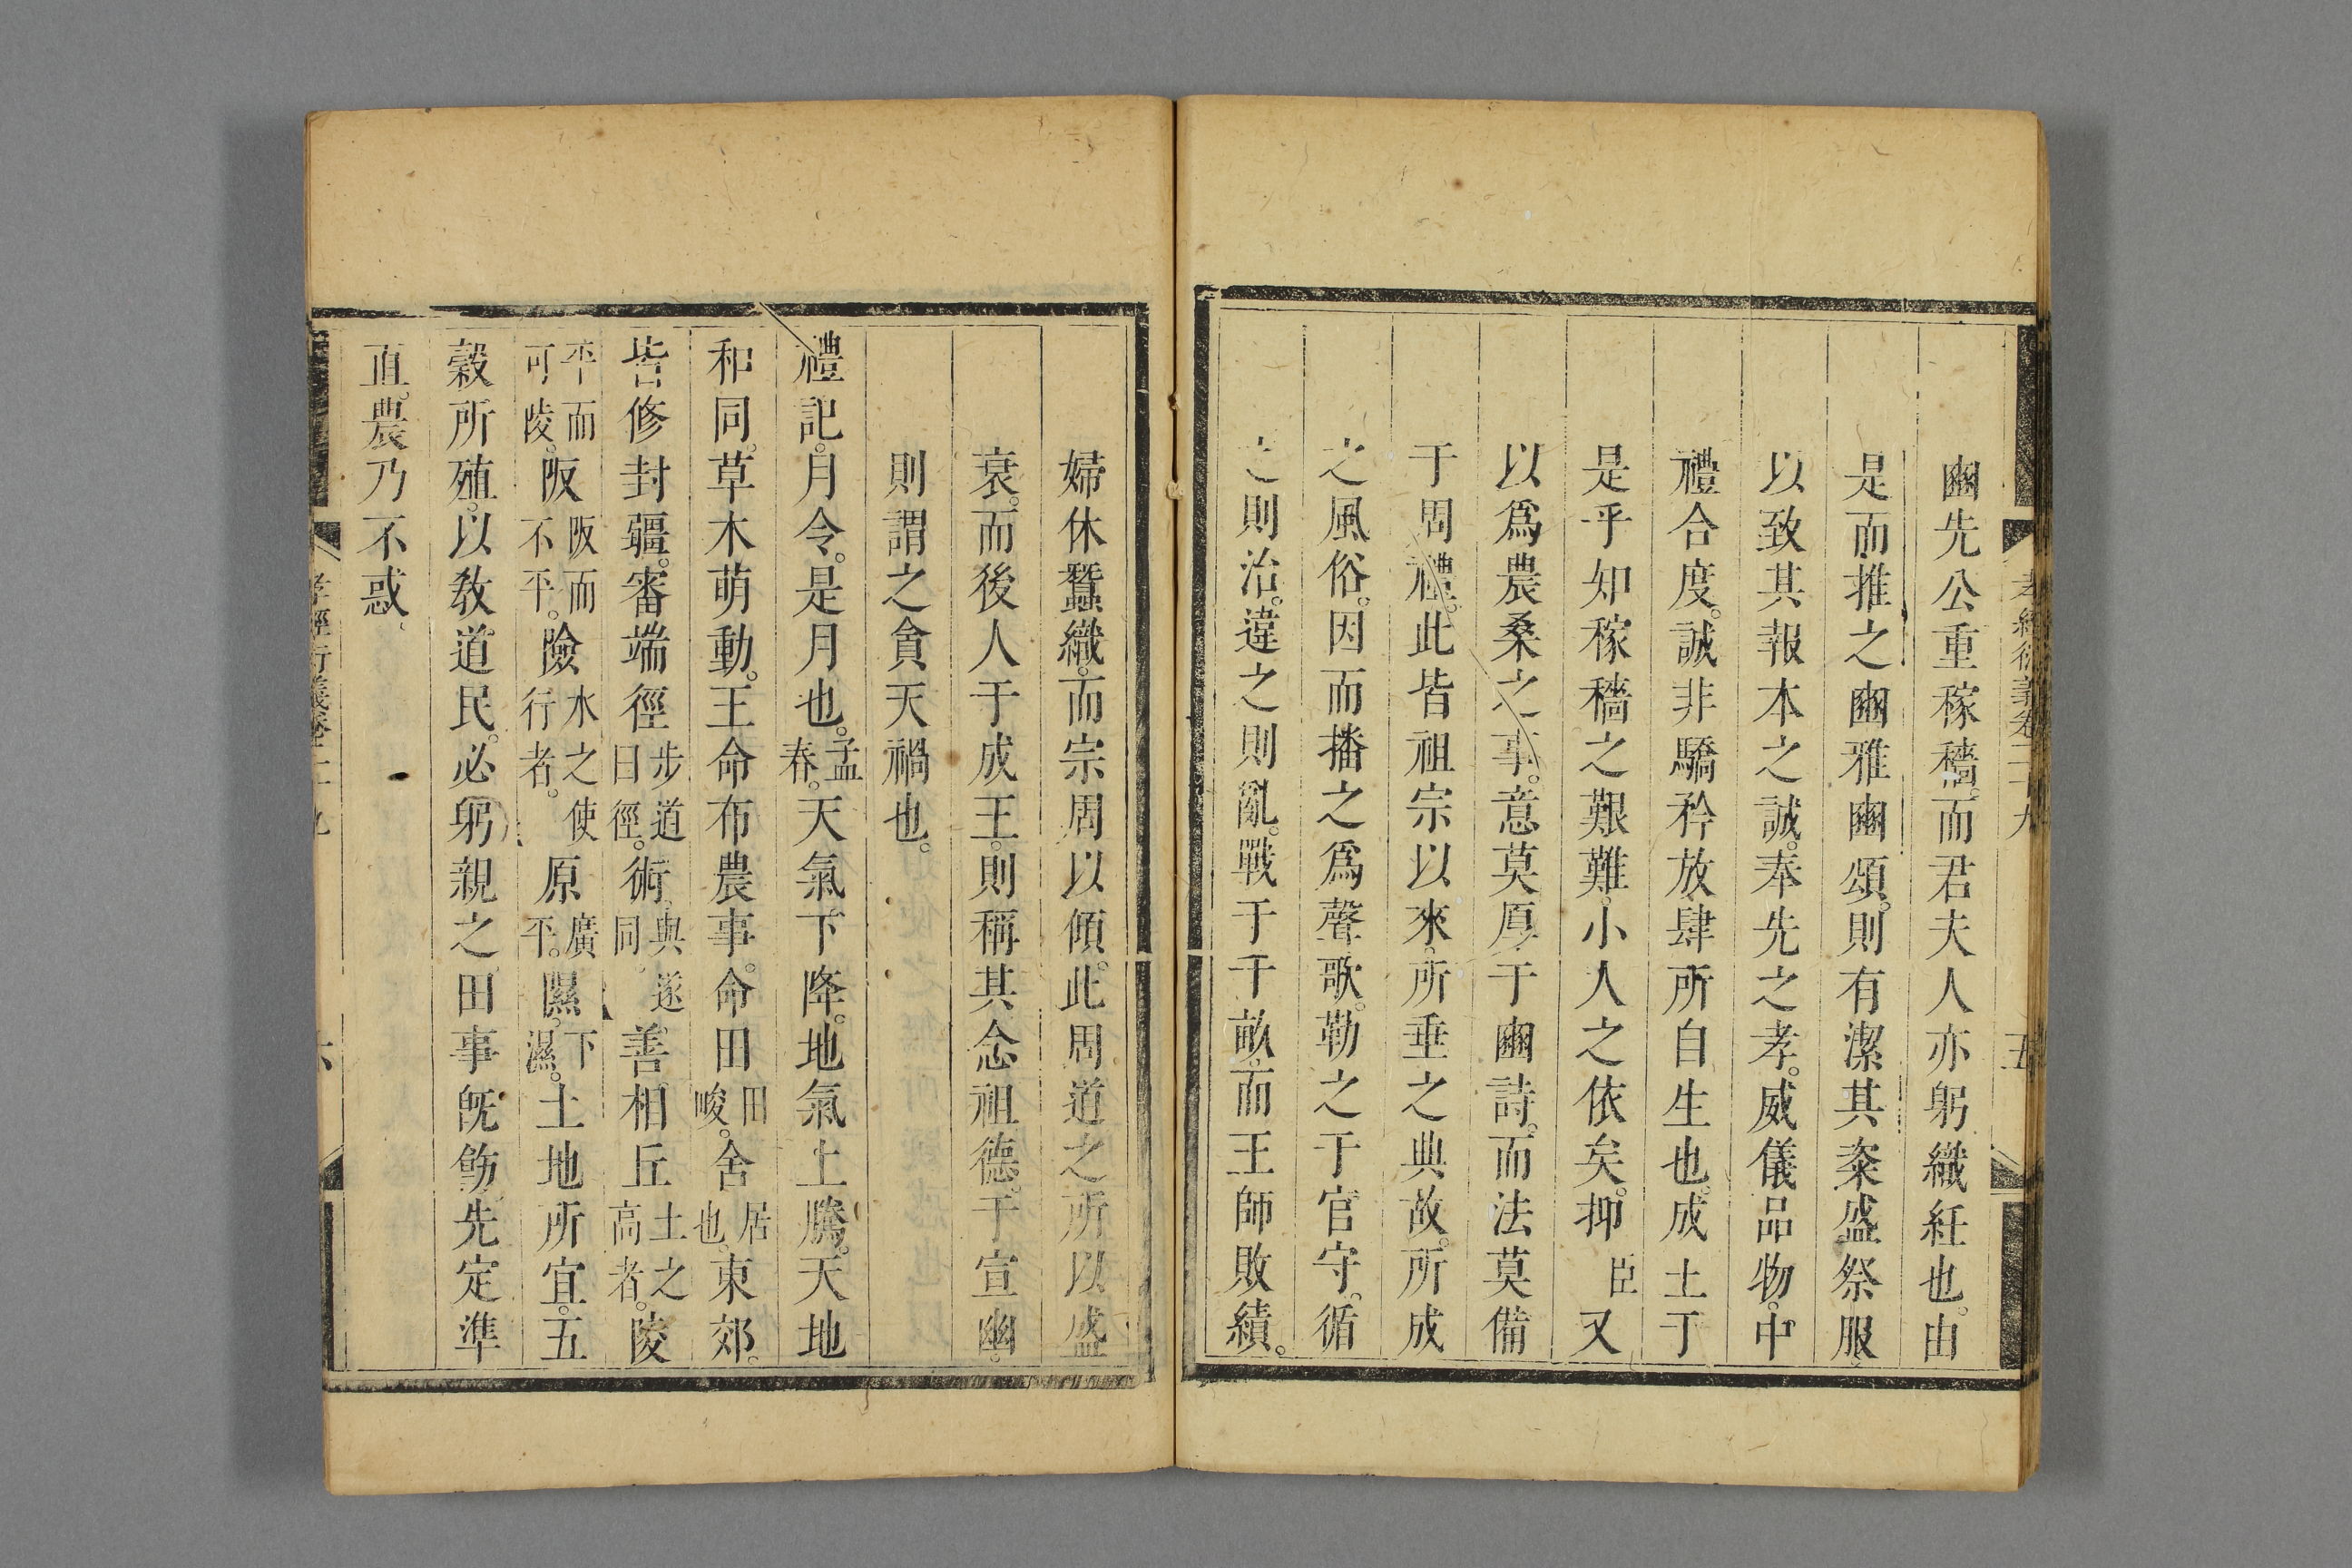 孝經衍義卷二十九
五
豳先公重稼穡。而君夫人亦躬織紝也。由
是而推之豳雅豳頌。則有潔其粢盛祭服。
以致其報本之誠。奉先之孝。威儀品物。中
禮合度。誠非驕矜放肆所自生也。成王于
是乎知稼穡之艱難。小人之依矣。抑臣又
以爲農桑之事。意莫厚于豳詩。而法莫備
于周禮。此皆祖宗以來。所垂之典故。所成
之風俗。因而播之爲聲歌。勒之于官守。循
之則治。違之則亂。戰于千畝。而王師敗績。
婦休蠶織。而宗周以傾。此周道之所以盛
衰。而後人于成王。則稱其念祖德。于宣幽。
則謂之貪天禍也。
禮記。月令。是月也。孟春。天氣下降。地氣上騰。天地
和同。草木萌動。王命布農事。命田田畯。舍居也。東郊。
皆修封疆。審端徑步道曰徑。術。與遂同。善相丘土之高者。陵
平而可陵。阪阪而不平。險水之使行者。原廣平。隰。下濕。土地所宜。五
穀所殖。以敎道民。必躬親之。田事旣飭。先定準
直。農乃不惑。
孝經衍義卷二十九
六